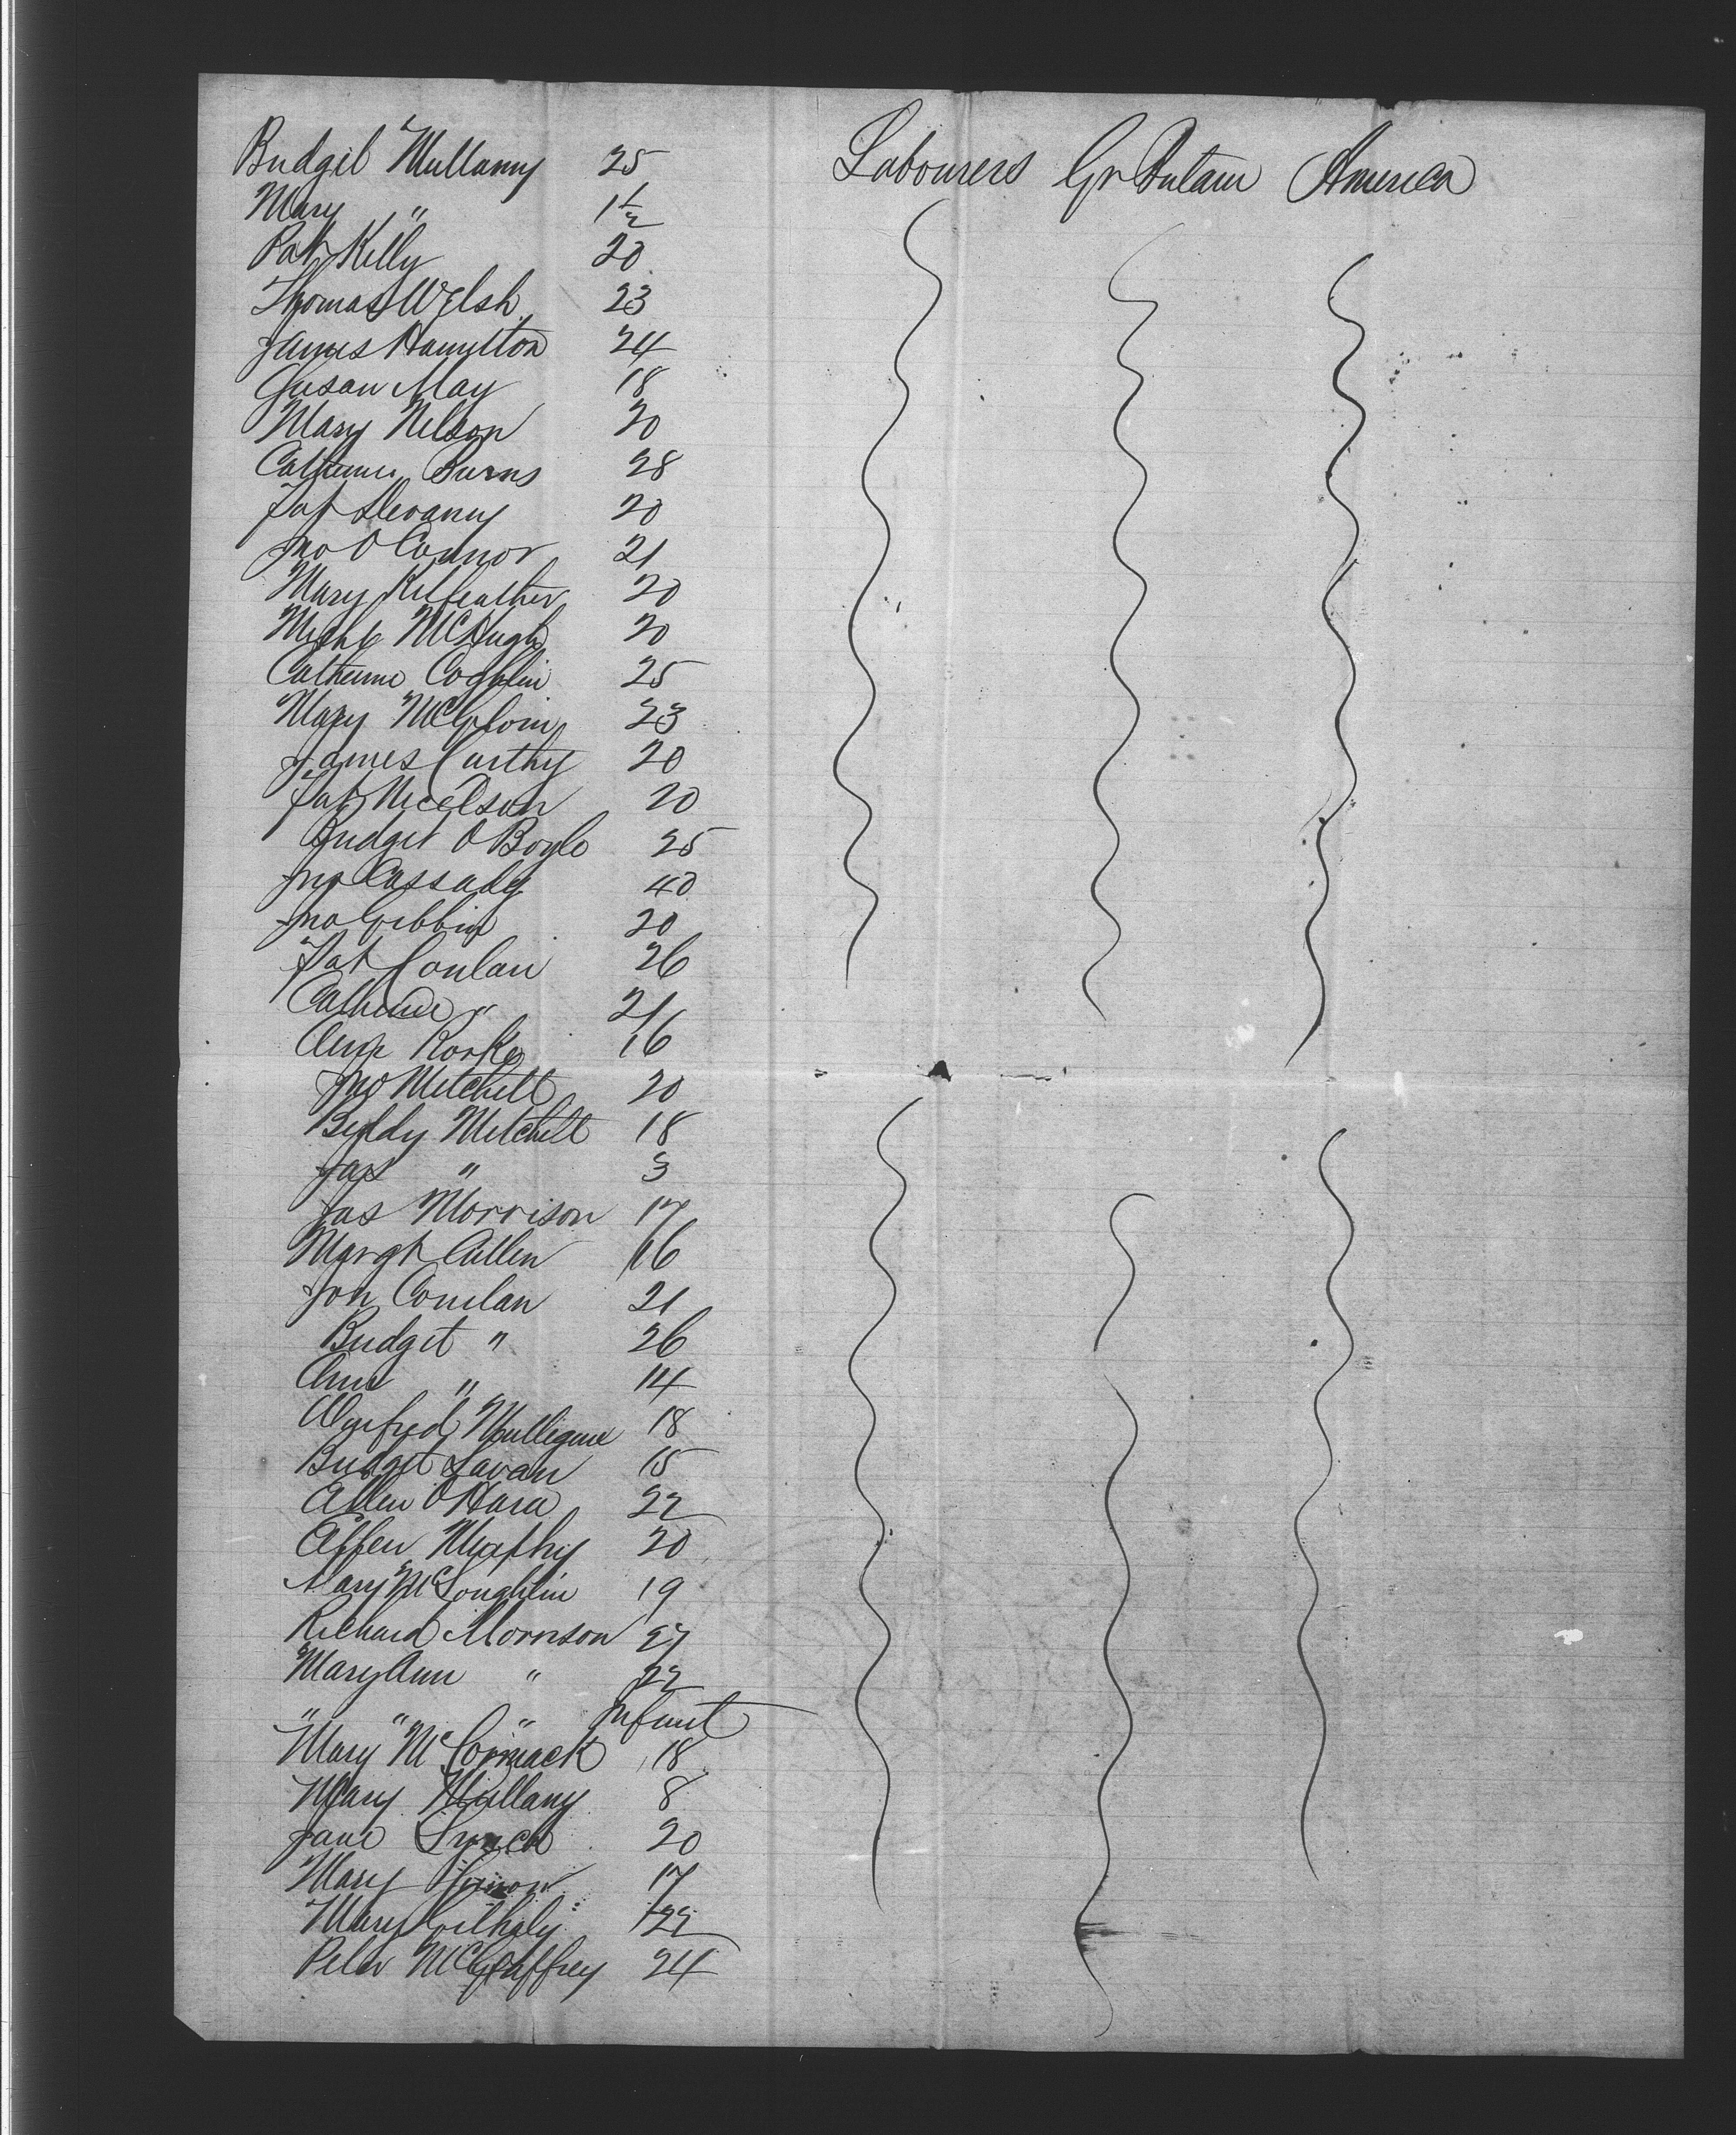 Bridgit Mullany 25 Labourers Gr Britain America
Mary " 1 1/2
Pat Kelly 20
Thomas Welsh 23
James Hamilton 24
Susan May 18
Mary Nelson 20
Catherine Burns 28
Pat Devany 20
Jno O Connor 21
Mary Kilfeather 20
Michl McHugh 20
Catherine Coghlin 25
Mary McGloin 23
James Carthy 20
Pat 20
Bridget O Boyle 25
Jno Cassady 40
Jno Gibbin 20
Pat Conlan 26
Catherine " 21
Ann Rorke 16
Jno Mitchell 20
Biddy Mitchell 18
Jas " 3
Jas Morrison 17
Margt Cullen 16
Jon Conlan 21
Bridget " 26
Ann " 14
Winfred Mulligan 18
Bridget Lavan 15
Ellen O Hara 22
Ellen Murphy 20
Mary McLoughlin 19
Richard Morrison 27
Mary Ann " 22
" " " Infant
Mary McCormack 18
Mary Mullany 8
Jane Lynch 20
Mary 17
Mary Gilhaly 22
Peter McGaffrey 24